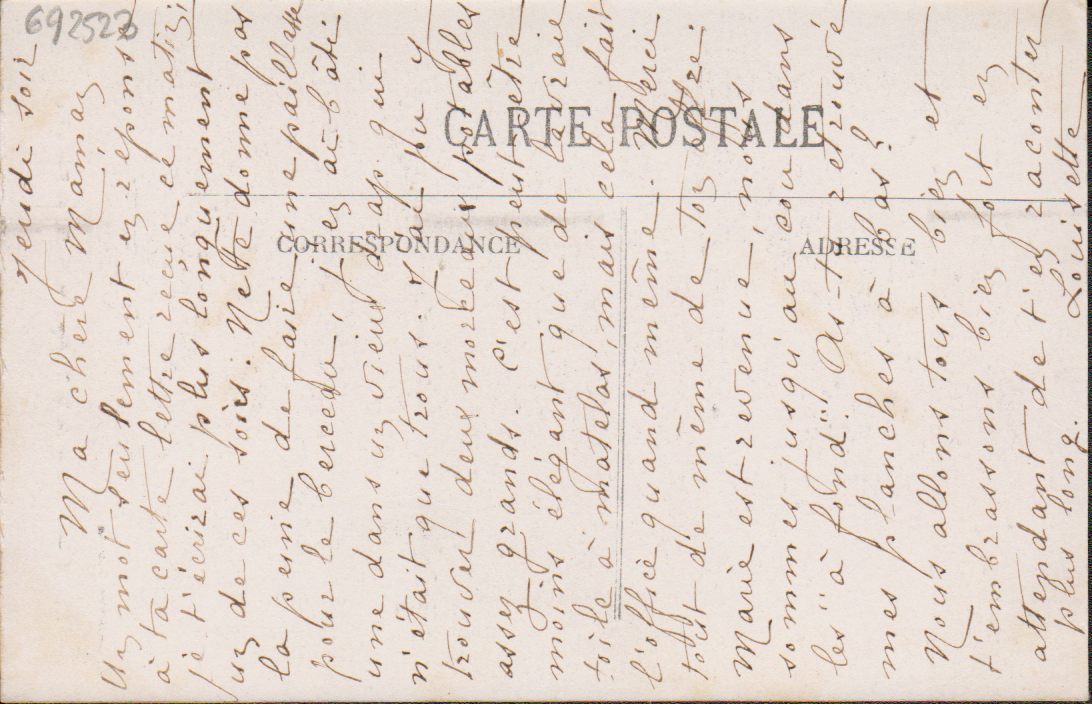 692523
CARTE POSTALE
CORRESPONDANCE
ADRESSE
Jeudi soir
Ma chère Maman
Un mot seulement en réponse
à ta carte lettre reçue ce matin,
je t'écrirai plus longuement
un de ces soirs. Ne te donne pas
la peine de faire une paillasse
pour le berceau, j'en ai bâti
une dans un vieux drap qui
n'était que trous. J'ai pu y
trouver deux morceaux potables
assez grands. C'est peut être
moins élégant que de la vraie
toile à matelas, mais cela fait
l'office quand même. Merci
tout de même de ton offre.
Marie est revenue, nous
sommes jusqu'au cou dans
les "à fond". As-tu retrouvé
mes planches à bas?
Nous allons tous bien et
t'embrassons bien fort en
attendant de t'en raconter
plus long. Louisette